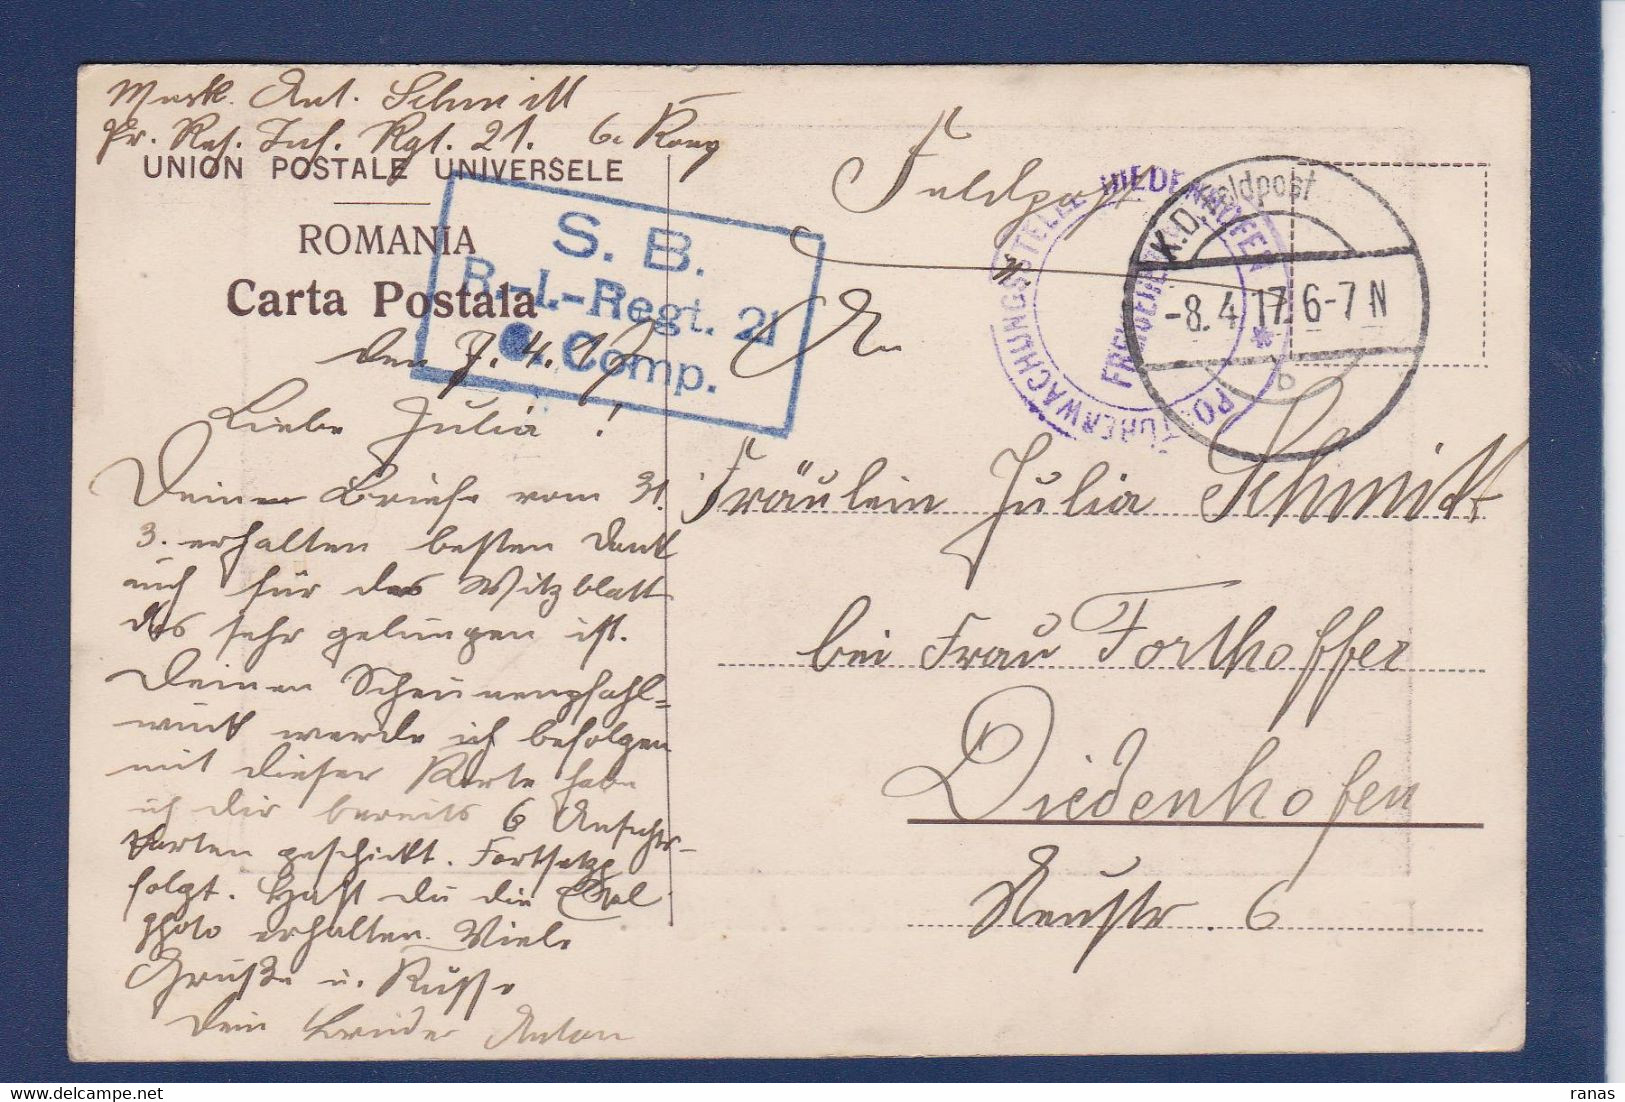 Musk. Ant. Schmitt
Pr. Res. Inf. Rgt. 21. 6. Komp
UNION POSTALE UNIVERSELE
ROMANIA
Carta Postala
S. B.
R.-I.-Regt. 21
Comp.
den 7.4.17
Liebe Julia!
Deinen Briefe vom 31.
3. erhalten besten Dank
auch für das Witzblatt
das sehr gelungen ist.
Deinen
wink werde ich befolgen
mit dieser Karte habe
ich dir bereits 6 Ansichts-
karten geschickt. Forts
folgt. Hast du die
photo erhalten. Viele
Grüße u. Küsse
Dein Bruder Anton
Feldpost
POSTÜBERWACHUNGSSTELLE DIEDENHOFEN
*
K.D. Feldpost
-8.4.17. 6-7 N
b
An
Fräulein Julia Schmitt
bei Frau Forthoffer
Diedenhofen
Neustr. 6
ranas